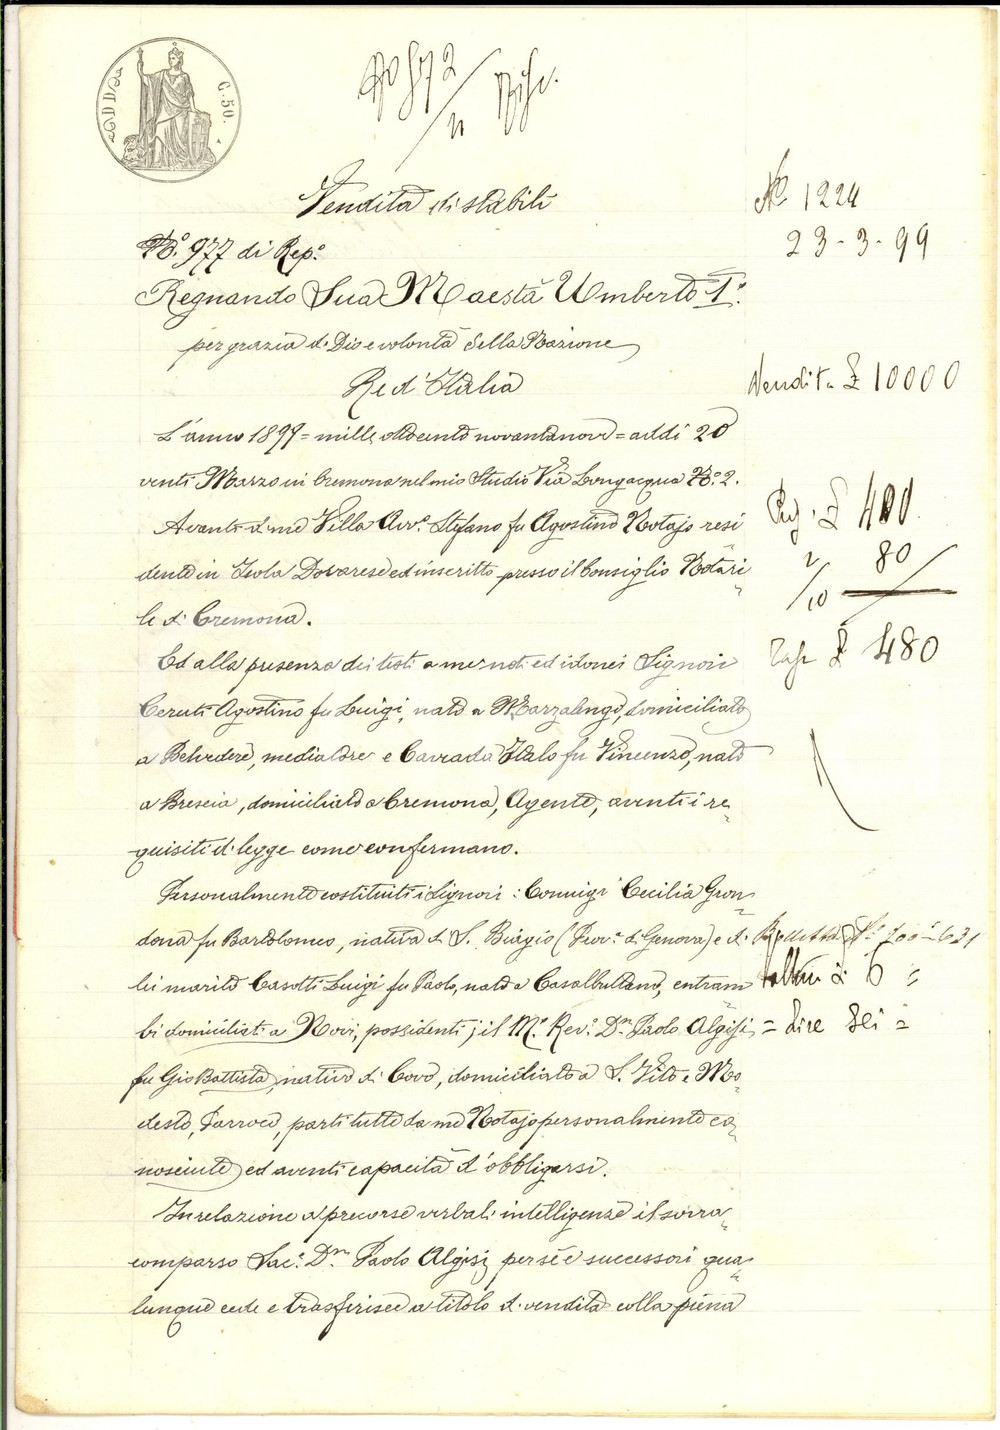 C. 50.
Vendita di stabili
Nº 1224
23-3-99
Nº. 977 di Rep.º
Regnando Sua Maestà Umberto Iº.
per grazia di Dio e volontà della Nazione
Re d'Italia
Vendita £ 10000
L'anno 1899 = mille ottocento novantanove = addì 20
venti Marzo in Cremona nel mio Studio Via Longacqua Nº. 2.
Avanti di me Villa Avvº. Stefano fu Agostino Notajo resi
Reg. £ 400.
2/10 80
dente in Isola Dovarese ed inscritto presso il Consiglio Notari
le di Cremona.
£ 480
Ed alla presenza dei testi a me noti ed idonei Signori
Ceruti Agostino fu Luigi, nato a Marzalengo, domiciliato
a Belvedere, mediatore e Cavrada Italo fu Vincenzo, nato
a Brescia, domiciliato a Cremona, Agente, aventi i re
quisiti di legge come confermano.
Personalmente costituiti i Signori: Conjugi Cecilia Gron
dona fu Bartolomeo, nativa di S. Biagio (Prov.ª di Genova) e di
lei marito Casotti Luigi fu Paolo, nato a Casalbuttano, entram
bi domiciliati a Novi, possidenti; il M.º Rev.º D.n Paolo Algisi
= Lire Sei =
fu Gio Battista, nativo di Covo, domiciliato a S. Vito e Mo
desto, Parroco, parti tutte da me Notajo personalmente co
nosciute ed aventi capacità d'obbligarsi.
In relazione a precorse verbali intelligenze il sovra
comparso Sac.º D.n Paolo Algisi per sé e successori qua
lunque cede e trasferisce a titolo di vendita colla piena